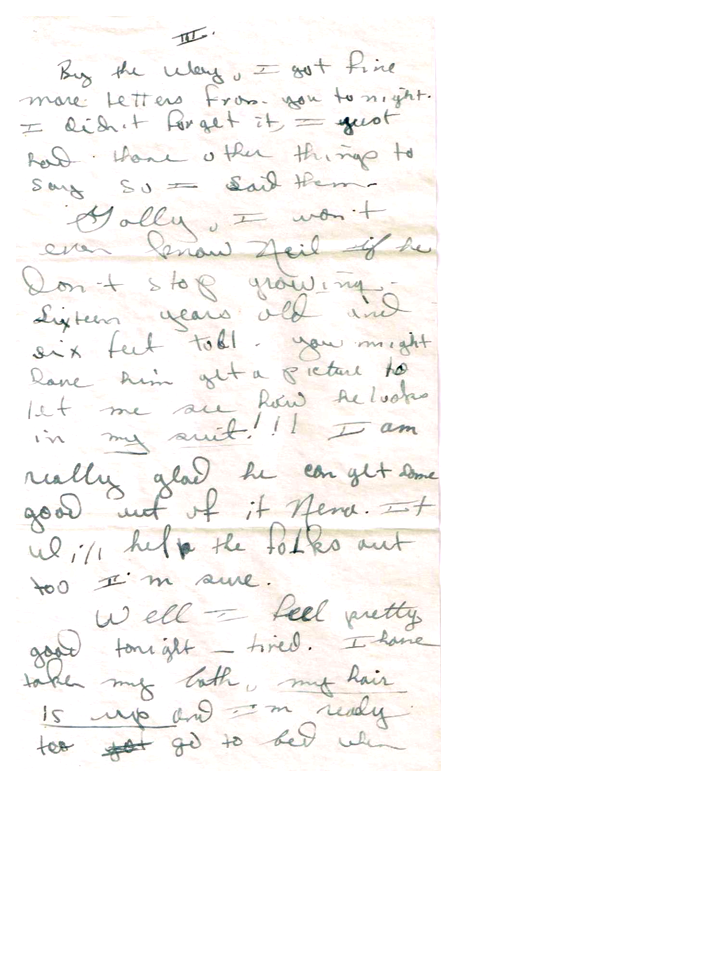 III.
By the way, I got five
more letters from you tonight.
I didn't forget it, I just
had those other things to
say so I said them.
Golly, I won't
even know Neil if he
don't stop growing.
Sixteen years old and
six feet tall. You might
have him get a picture to
let me see how he looks
in my suit!!! I am
really glad he can get some
good out of it Nena. It
will help the folks out
too I'm sure.
Well I feel pretty
good tonight — tired. I have
taken my bath, my hair
is up and I'm ready
too got go to bed when